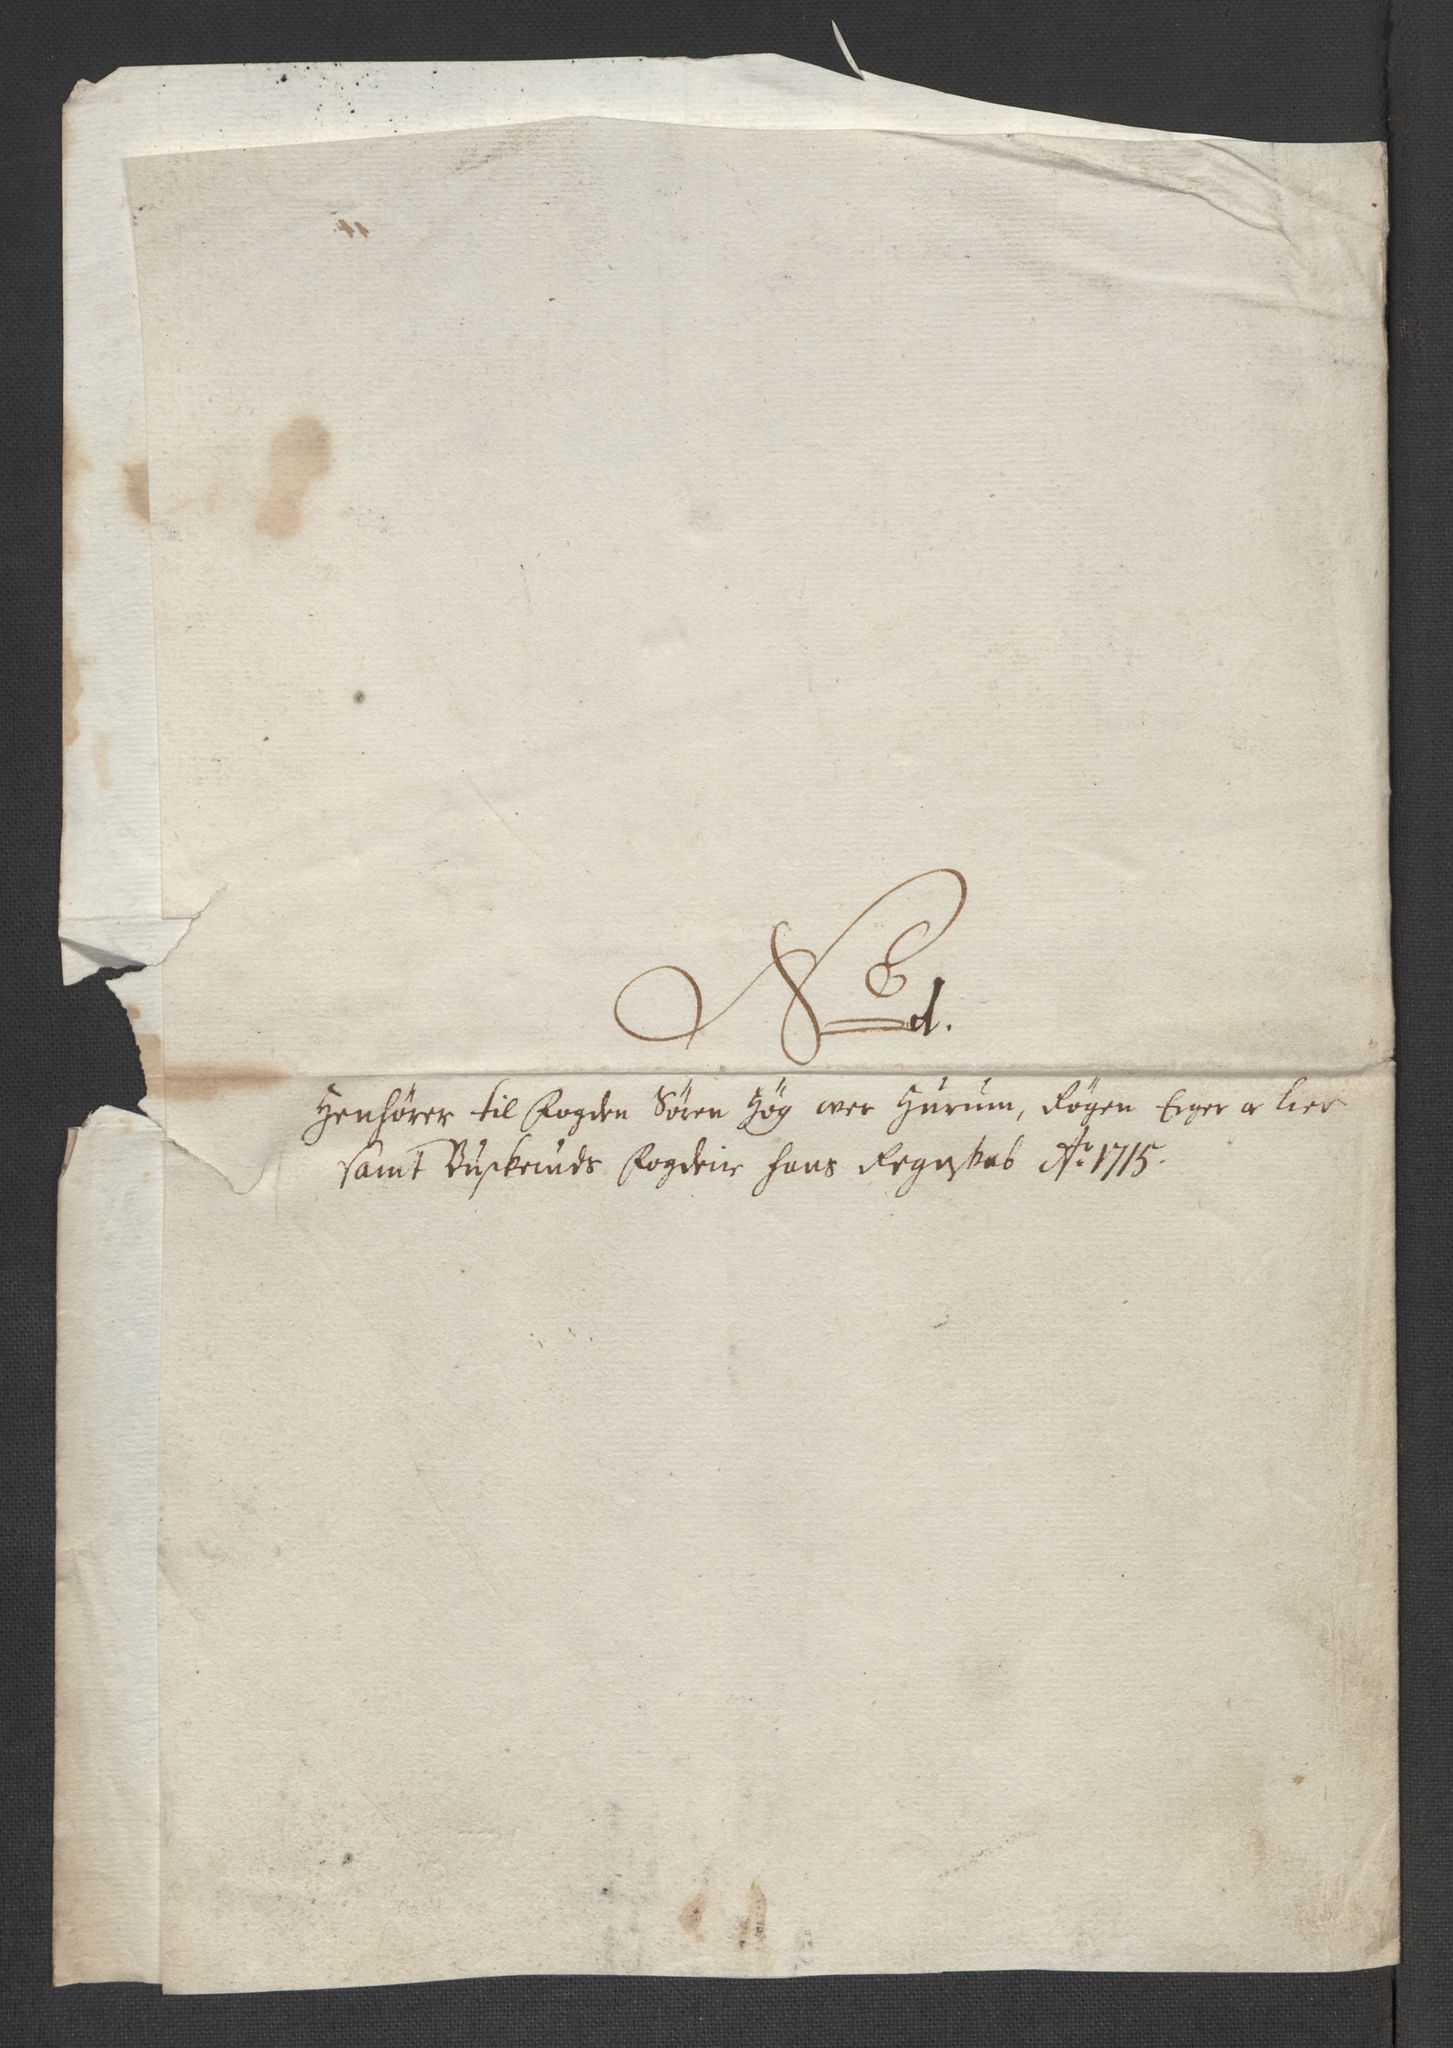 N° d.
Henhörer til Fogden Sören Hög over Hurum, Rögen Eger og Lier
samt Buskeruds Fogderie hans Regnskab A° 1715.